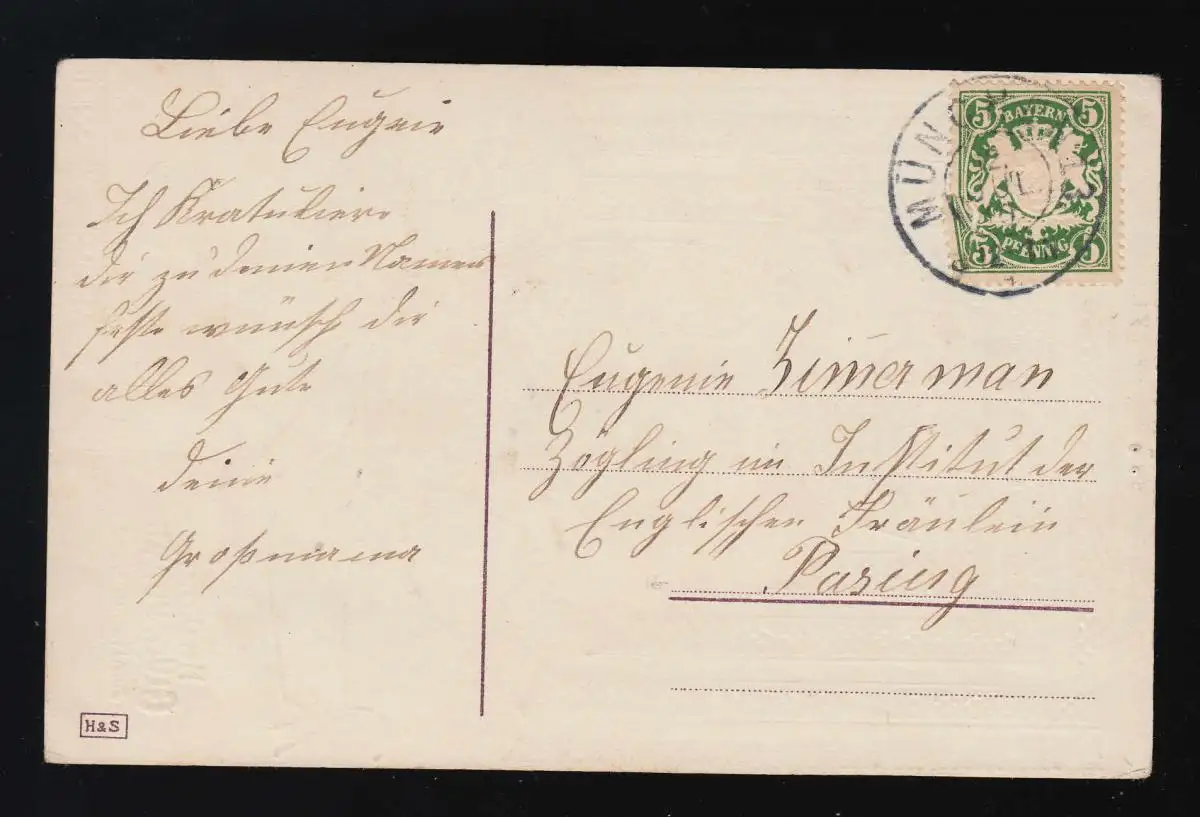 Liebe Eugenie
Ich Kratuliere
dir zu deinen Namens
feste wünsch dir
alles Gute
deine
Großmama
H&S
MÜNCHEN
5 BAYERN 5
5 PFENNIG 5
Eugenie Zim̄erman
Zögling im Institut der
Englischen Fräulein
Pasing